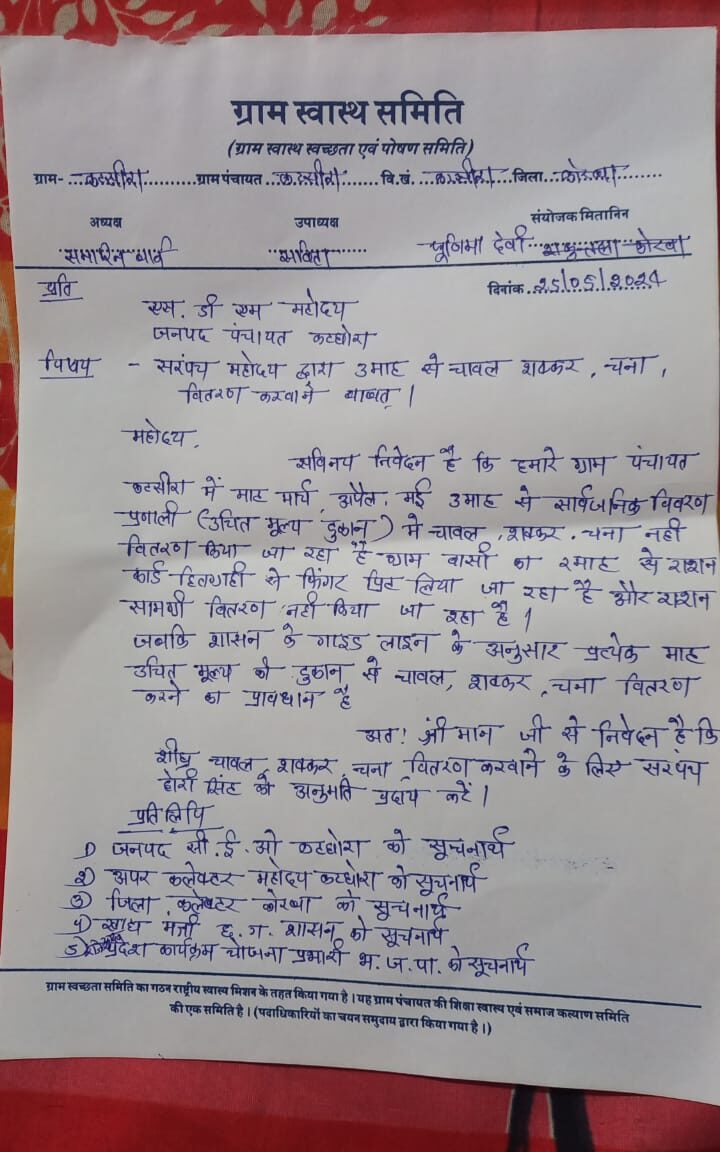 ग्राम स्वास्थ समिति
(ग्राम स्वास्थ स्वच्छता एवं पोषण समिति)
ग्राम-...कटसीरा...ग्राम पंचायत...कटसीरा...वि.खं....जिला...कोरबा...
अध्यक्ष उपाध्यक्ष संयोजक मितानिन
समारिन बाई सविता पूर्णिमा देवी
प्रति दिनांक.25/05/2024
एस. डी एम महोदय
जनपद पंचायत कटघोरा
विषय - सरंपच महोदय द्वारा 3माह से चावल शक्कर, चना,
वितरण करवाने बाबत्।
महोदय,
सविनय निवेदन है कि हमारे ग्राम पंचायत
कटसीरा में माह मार्च, अप्रैल, मई 3माह से सार्वजनिक विवरण
प्रणाली (उचित मूल्य दुकान) में चावल, शक्कर, चना नही
वितरण किया जा रहा है ग्राम वासी का 2माह से राशन
कार्ड हितग्राही से फिंगर प्रिंट लिया जा रहा है और राशन
सामग्री वितरण नही किया जा रहा है।
जबकि शासन के गाइड लाइन के अनुसार प्रत्येक माह
उचित मूल्य की दुकान से चावल, शक्कर, चना वितरण
करने का प्रावधान है
अत! श्री मान जी से निवेदन है कि
शीघ्र चावल शक्कर, चना वितरण करवाने के लिए सरपंच
होरी सिंह को अनुमति प्रदाय करें।
प्रतिलिपि
1) जनपद सी.ई.ओ कटघोरा को सूचनार्थ
2) अपर कलेक्टर महोदय कटघोरा को सूचनार्थ
3) जिला कलेक्टर कोरबा को सूचनार्थ
4) खाद्य मंत्री छ.ग. शासन को सूचनार्थ
5) प्रदेश कार्यक्रम योजना प्रभारी भ.ज.पा. को सूचनार्थ
ग्राम स्वच्छता समिति का गठन राष्ट्रीय स्वास्थ मिशन के तहत किया गया है। यह ग्राम पंचायत की शिक्षा स्वास्थ एवं समाज कल्याण समिति
की एक समिति है। (पदाधिकारियों का चयन समुदाय द्वारा किया गया है।)